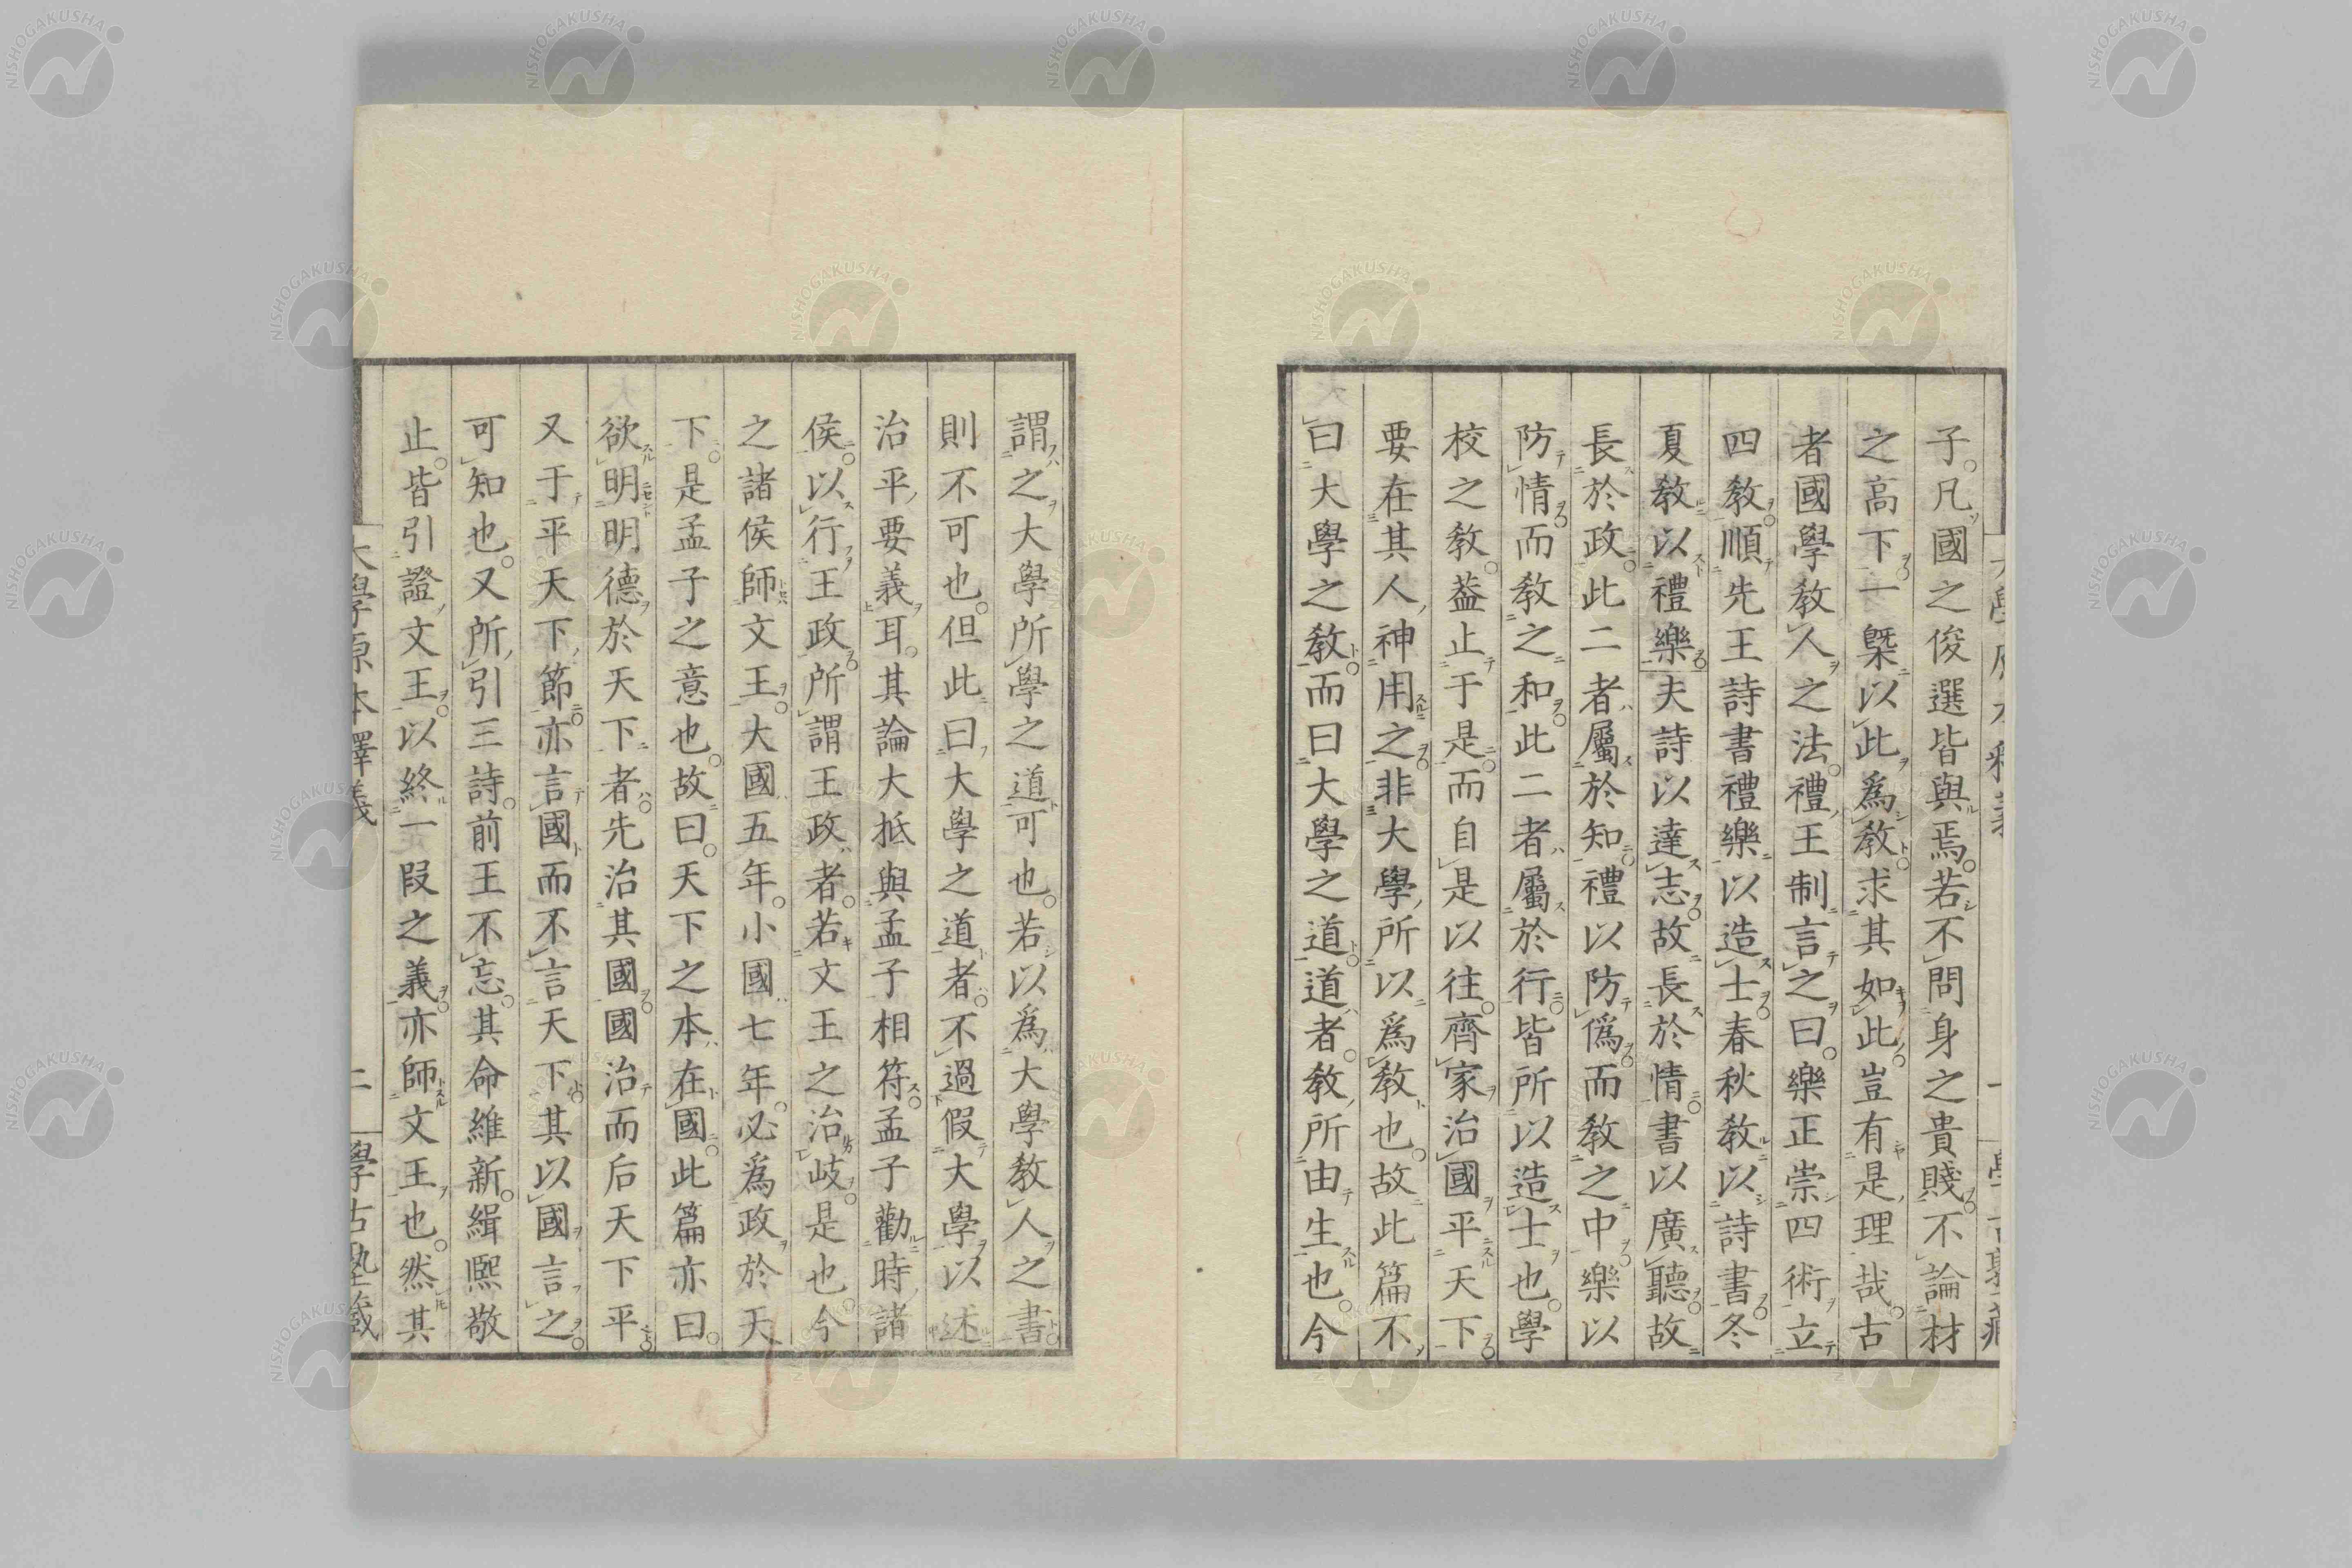 子。凡國之俊選皆與焉。若不問身之貴賤不論材
之高下一槩以此爲教求其如此豈有是理哉。古
者國學教人之法。禮王制言之曰。樂正崇四術立
四教順先王詩書禮樂以造士春秋教以詩書冬
夏教以禮樂夫詩以達志故長於情書以廣聽故
長於政此二者屬於知禮以防僞而教之中樂以
防情而教之和此二者屬於行皆所以造士也。學
校之教。葢止于是而自是以往。齊家治國平天下
要在其人神用之非大學所以爲教也。故此篇不
曰大學之教而曰大學之道道者。教所由生也。今
謂之大學所學之道可也。若以爲大學教人之書
則不可也。但此曰大學之道者。不過假大學以述
治平要義耳。其論大抵與孟子相符。孟子勸時諸
侯。以行王政所謂王政者。若文王之治岐。是也。今
之諸侯師文王。大國五年。小國七年。必爲政於天
下。是孟子之意也。故曰。天下之本在國此篇亦曰。
欲明明德於天下者。先治其國國治而后天下平
又于平天下節亦言國而不言天下其以國言之
可知也。又所引三詩。前王不忘。其命維新。緝熙敬
止。皆引證文王。以終一段之義亦師文王也。然其
大學原本釋義
二
學古塾藏